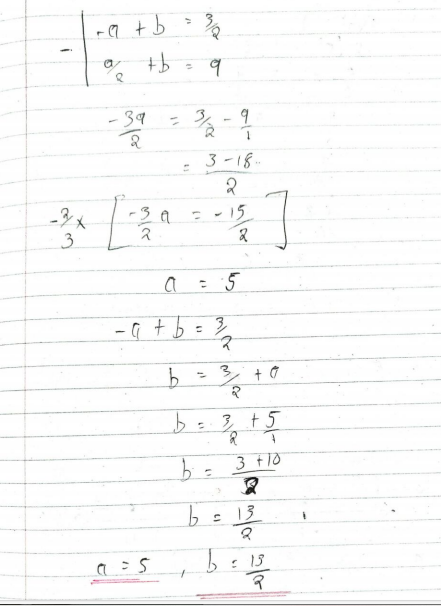 -a + b = 3/2
- a/2 + b = 9
-3a/2 = 3/2 - 9/1
= 3-18/2
-2/3 x [ -3/2 a = -15/2 ]
a = 5
-a + b = 3/2
b = 3/2 + a
b = 3/2 + 5/1
b = 3+10/2
b = 13/2
a = 5 , b = 13/2